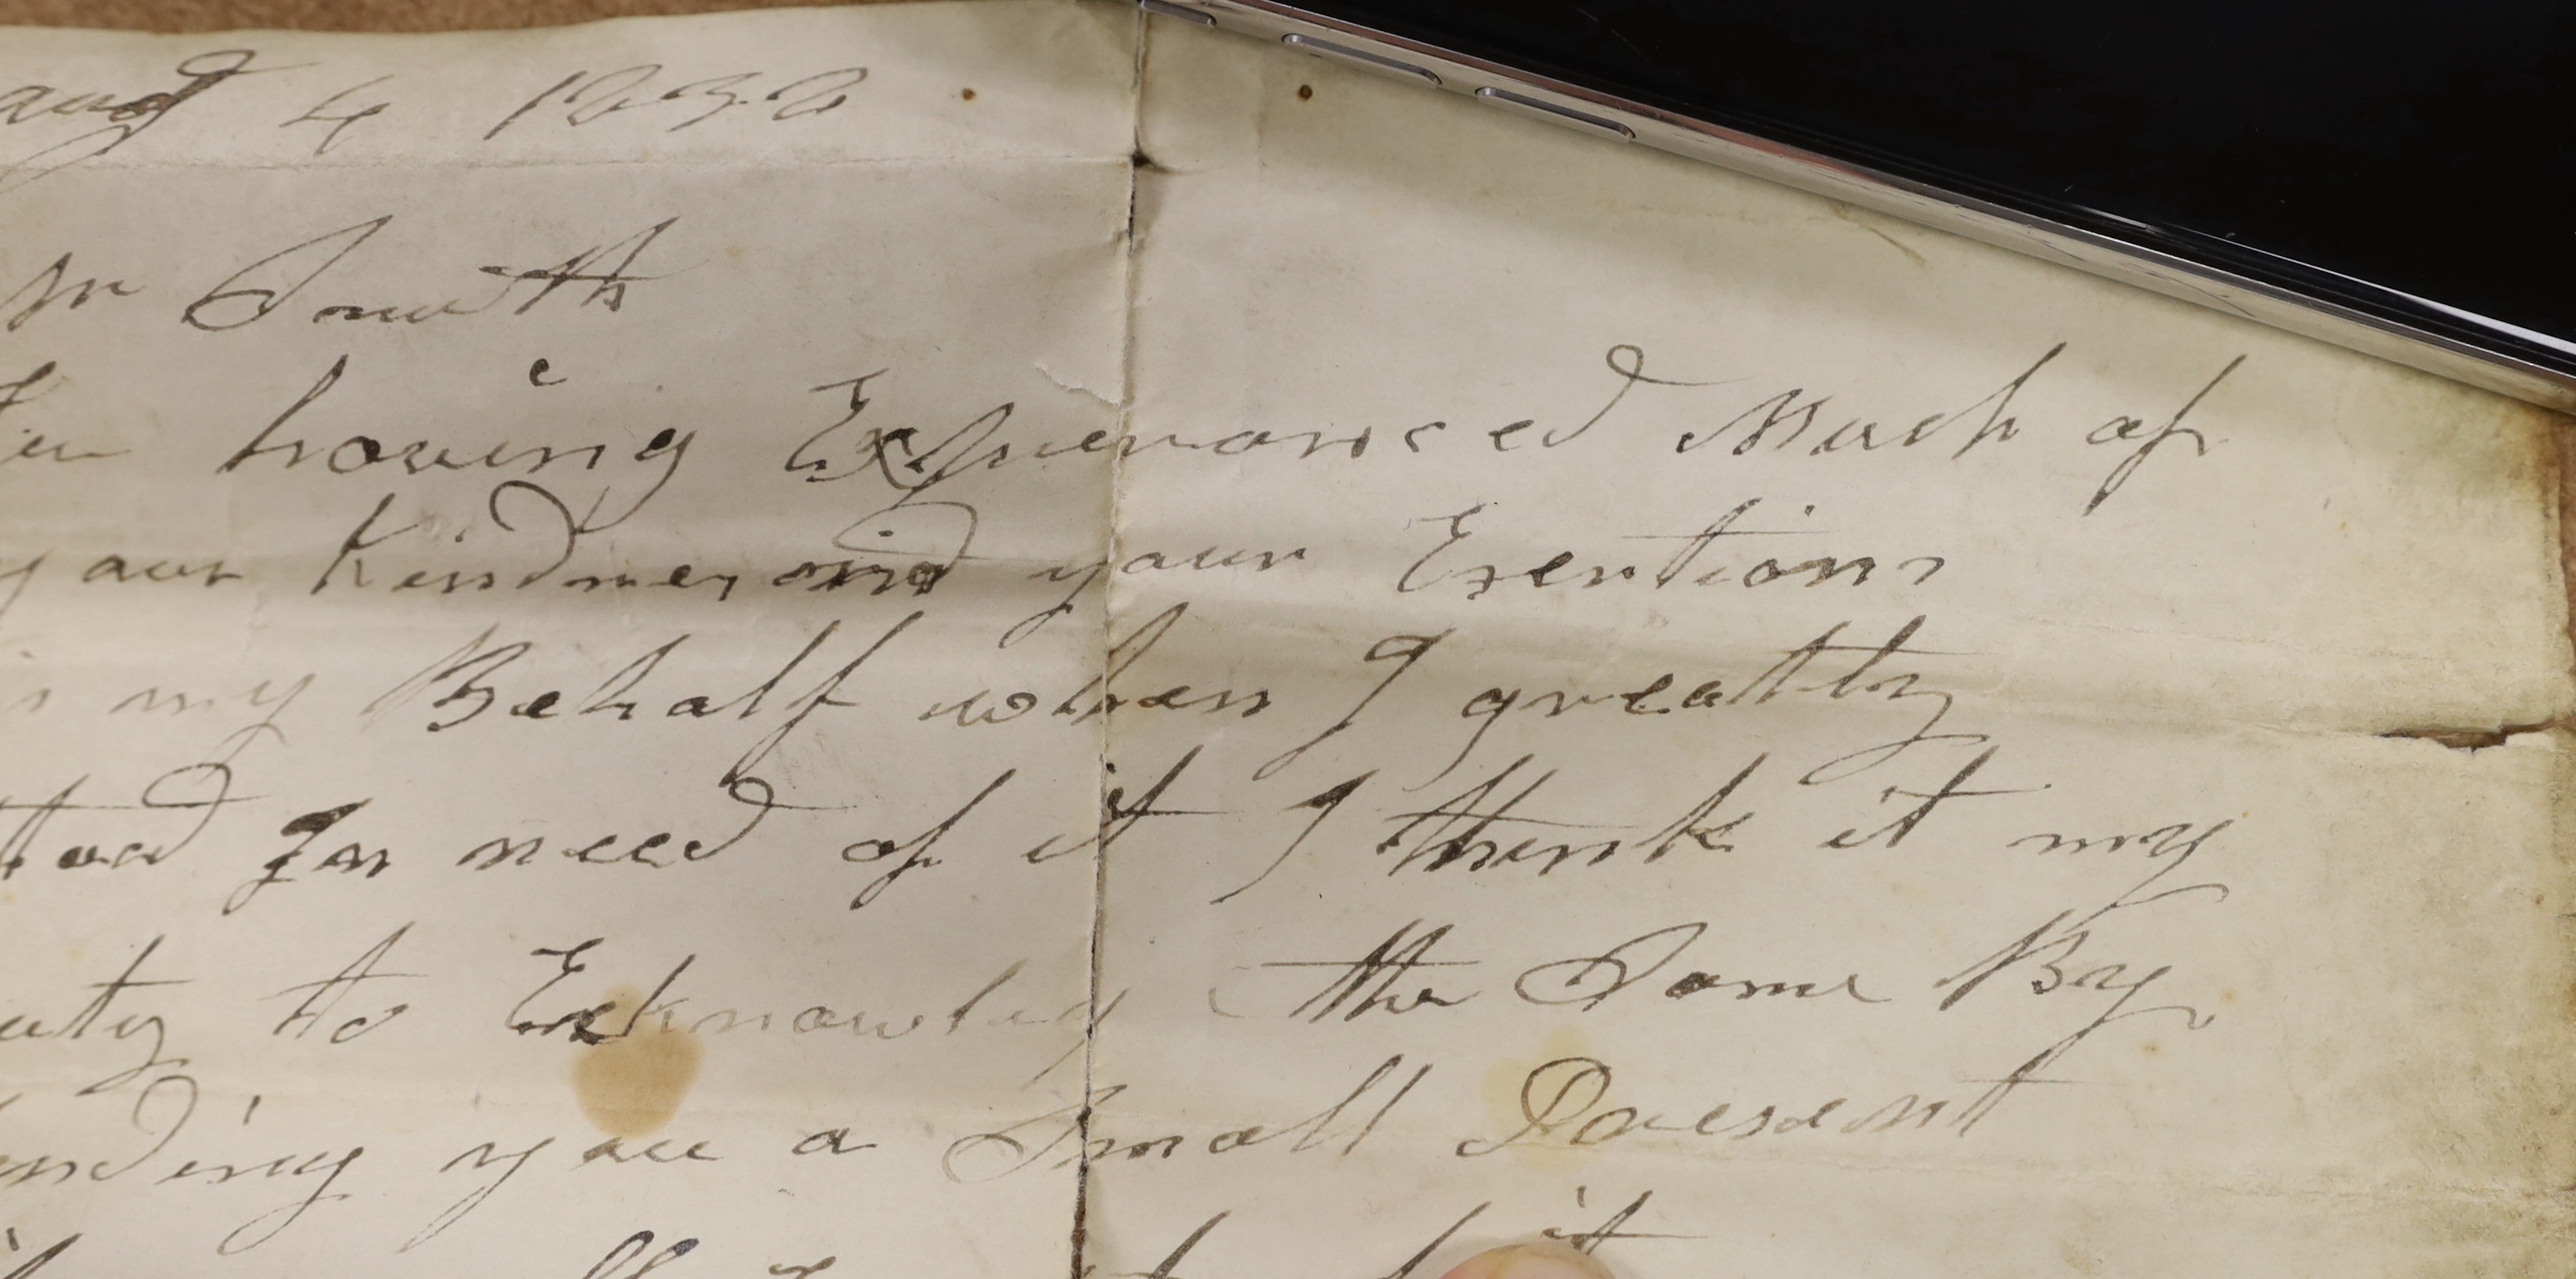 4
Mr Smith
having Experianced Much of
your Kindness and your Exertions
in my Behalf when I greatly
In need of it I think it my
to Eeknowledg the Same By
you a Small Present
it